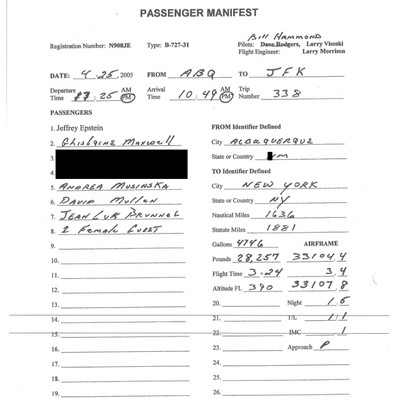 PASSENGER MANIFEST
Bill HAMMOND
Registration Number: N908JE Type: B-727-31 Pilots: Dave Rodgers, Larry Visoski
Flight Engineer: Larry Morrison
DATE: 4.25.2005 FROM ABQ TO JFK
Departure Time 25 AM PM Arrival Time 10:49 AM PM Trip Number 338
PASSENGERS
1. Jeffrey Epstein FROM Identifier Defined
2. Ghislaine Maxwell City ALBUQUERQUE
State or Country NM
TO Identifier Defined
5. ANDREA MUSINSKA City NEW YORK
6. DAVID MULLEN State or Country NY
7. JEAN LUK BRUNNEL Nautical Miles 1636
8. 2 FEMALE GUEST Statute Miles 1881
9. Gallons 4746 AIRFRAME
10. Pounds 28,257 33104.4
11. Flight Time 3+24 3.4
12. Altitude FL 390 33107.8
13. 20. Night 1.5
14. 21. T/L 1:1
15. 22. IMC .1
16. 23. Approach P
17. 24.
18. 25.
19. 26.